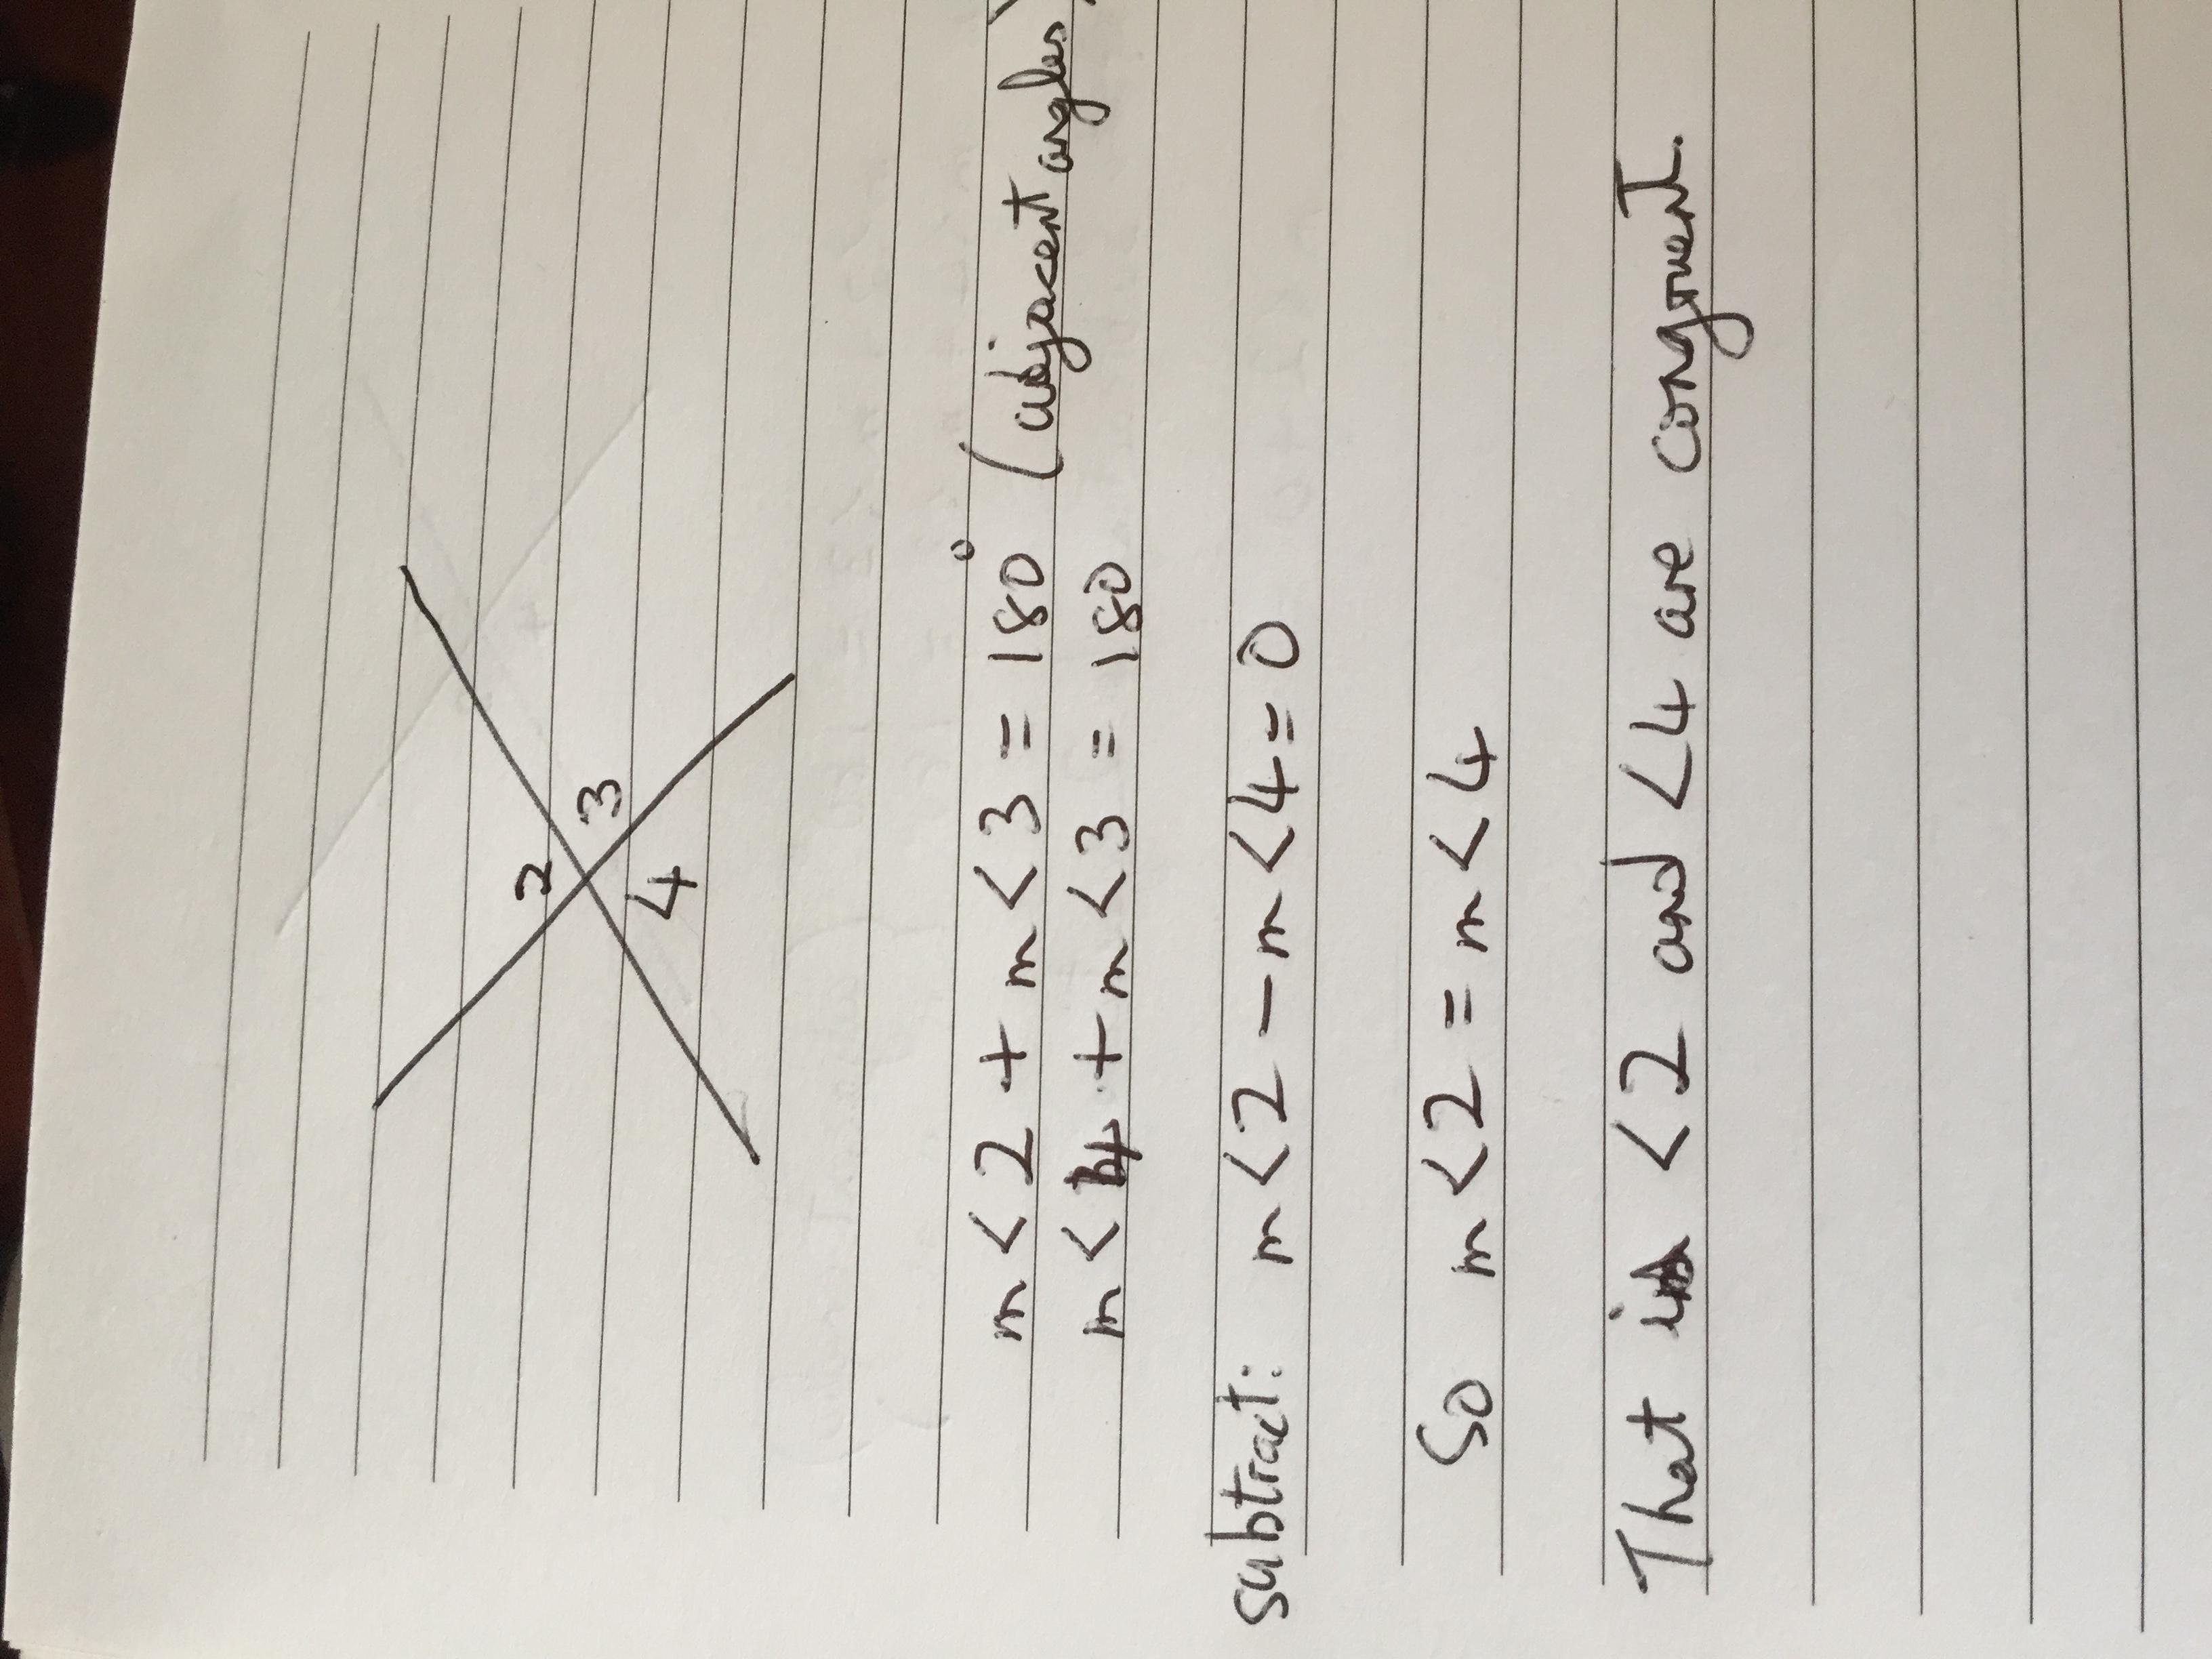 2
3
4
m<2 + m<3 = 180° (adjacent angles)
m<4 + m<3 = 180
subtract: m<2 - m<4 = 0
So m<2 = m<4
That is <2 and <4 are congruent.